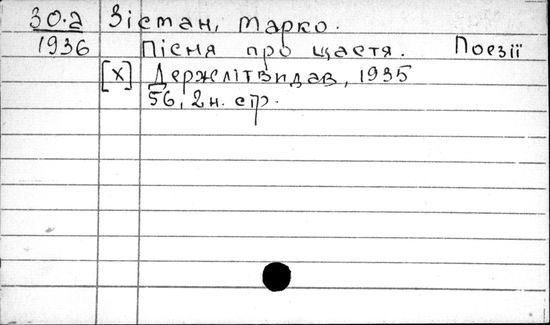 30.а Зістан, Марко.
1936 Пісня про щастя. Поезії
[х] Держлітвидав, 1935
56, 2 н. стр.